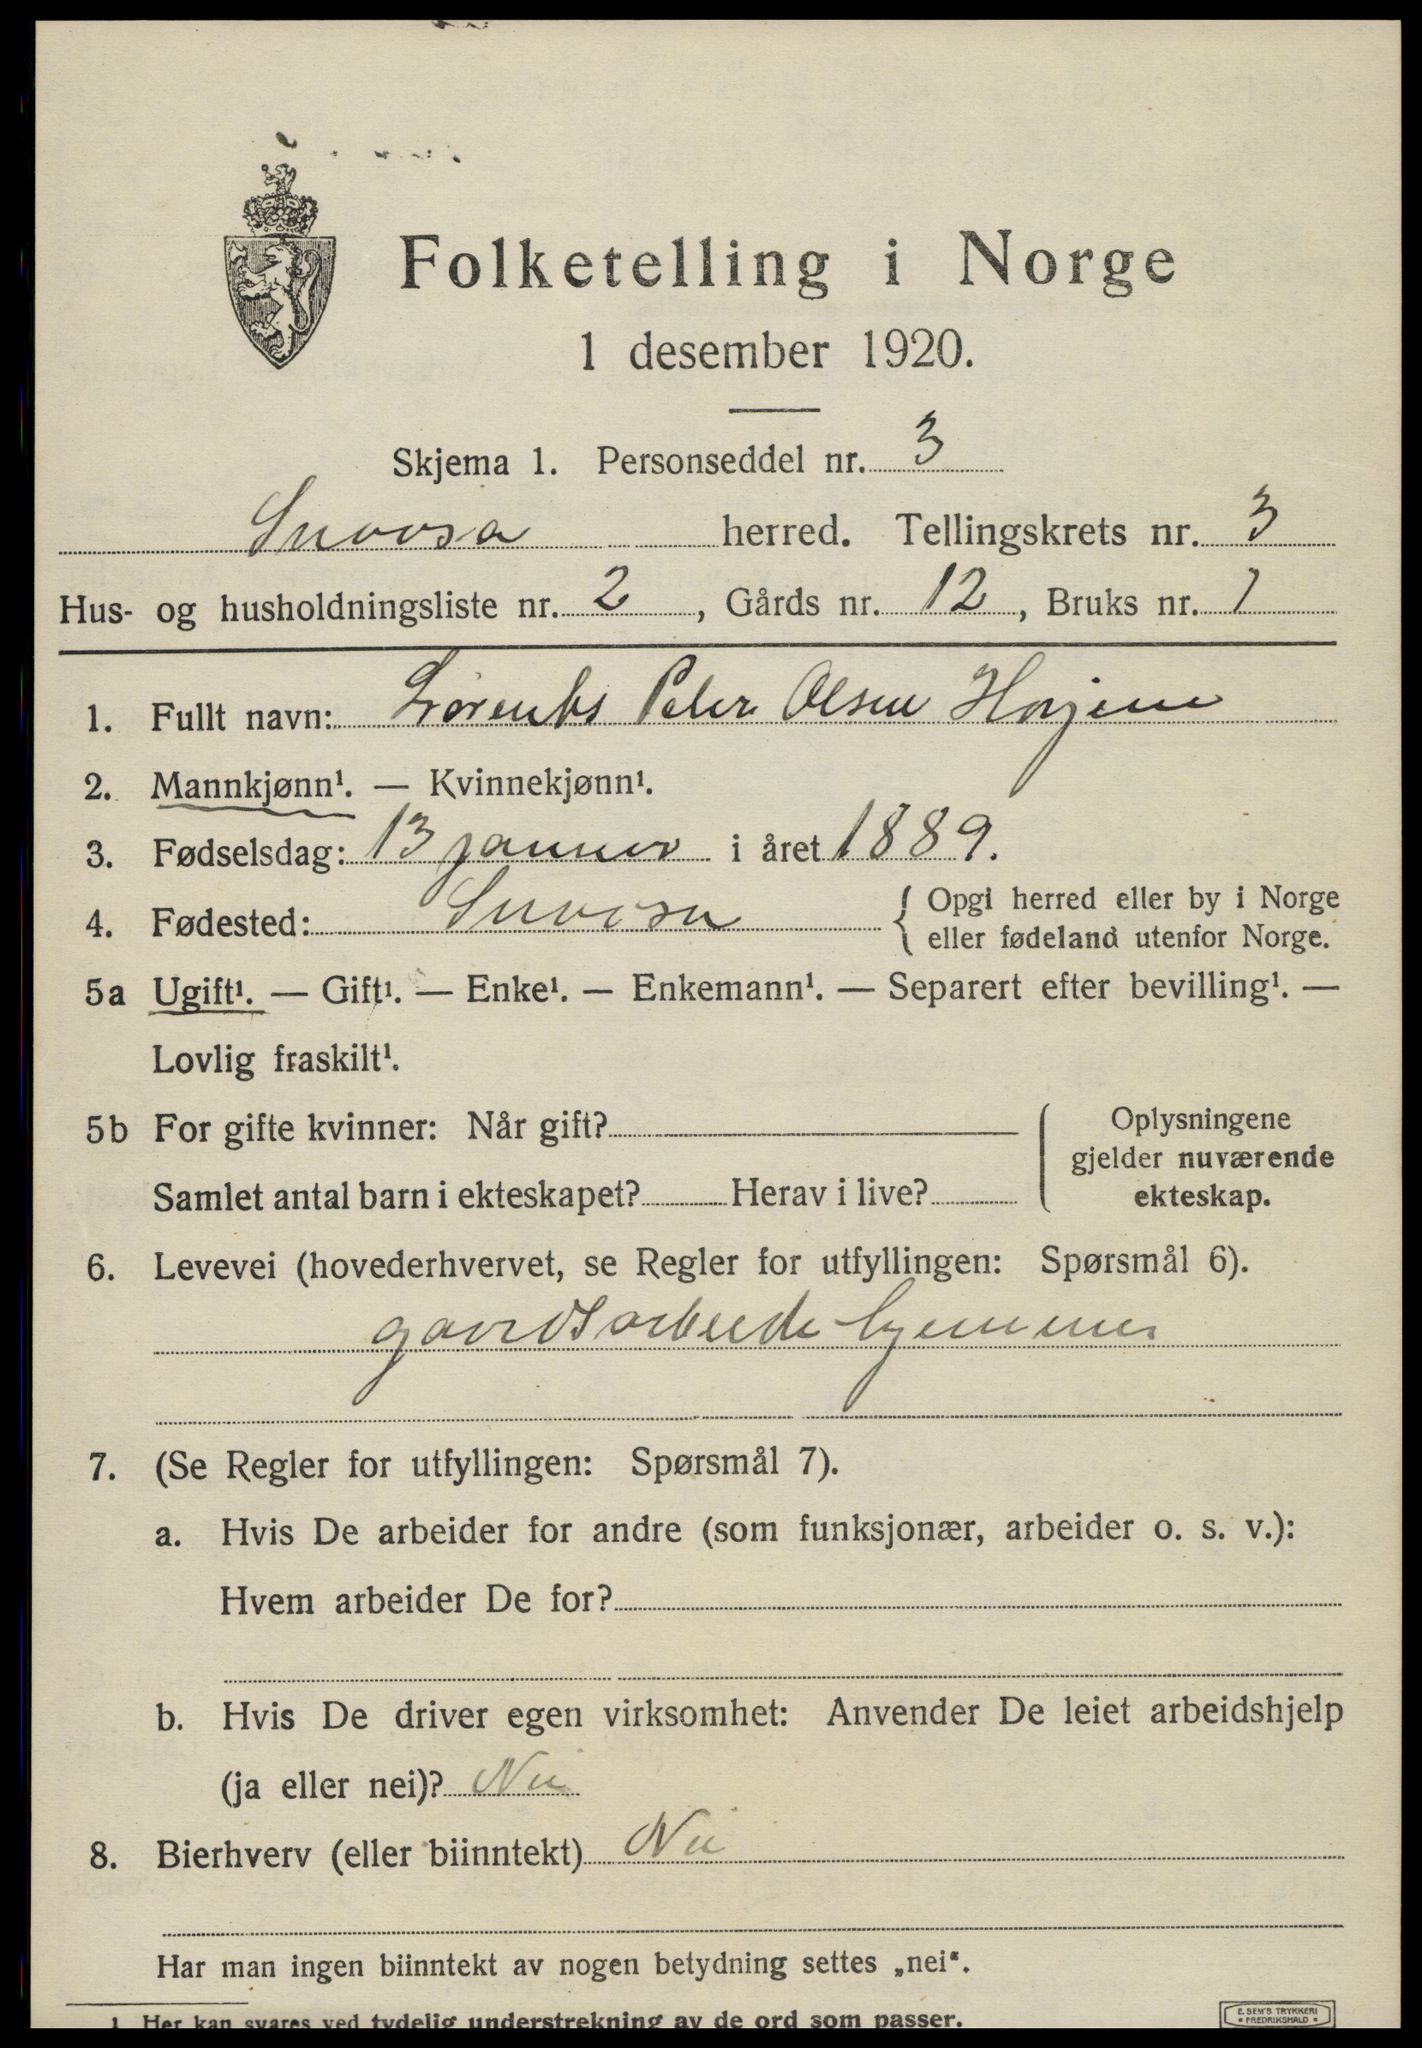 Folketelling i Norge
1 desember 1920.
Skjema 1. Personseddel nr. 3
Snaasa herred. Tellingskrets nr. 3
Hus- og husholdningsliste nr. 2, Gårds nr. 12, Bruks nr. 1
1. Fullt navn: Lorents Peter Olsen
2. Mannkjønn¹. — Kvinnekjønn¹.
3. Fødselsdag: 13 januar i året 1889.
4. Fødested: Snaasa { Opgi herred eller by i Norge
eller fødeland utenfor Norge.
5a Ugift¹. — Gift¹. — Enke¹. — Enkemann¹. — Separert efter bevilling¹. —
Lovlig fraskilt¹.
5b For gifte kvinner: Når gift?
Samlet antal barn i ekteskapet? Herav i live?
Oplysningene
gjelder nuværende
ekteskap.
6. Levevei (hovederhvervet, se Regler for utfyllingen: Spørsmål 6).
gaardsarbeide hjemme
7. (Se Regler for utfyllingen: Spørsmål 7).
a. Hvis De arbeider for andre (som funksjonær, arbeider o. s. v.):
Hvem arbeider De for?
b. Hvis De driver egen virksomhet: Anvender De leiet arbeidshjelp
(ja eller nei)? Nei
8. Bierhverv (eller biinntekt) Nei
Har man ingen biinntekt av nogen betydning settes „nei“.
1 Her kan svares ved tydelig understrekning av de ord som passer.
E. SEM'S TRYKKERI
FREDRIKSHALD